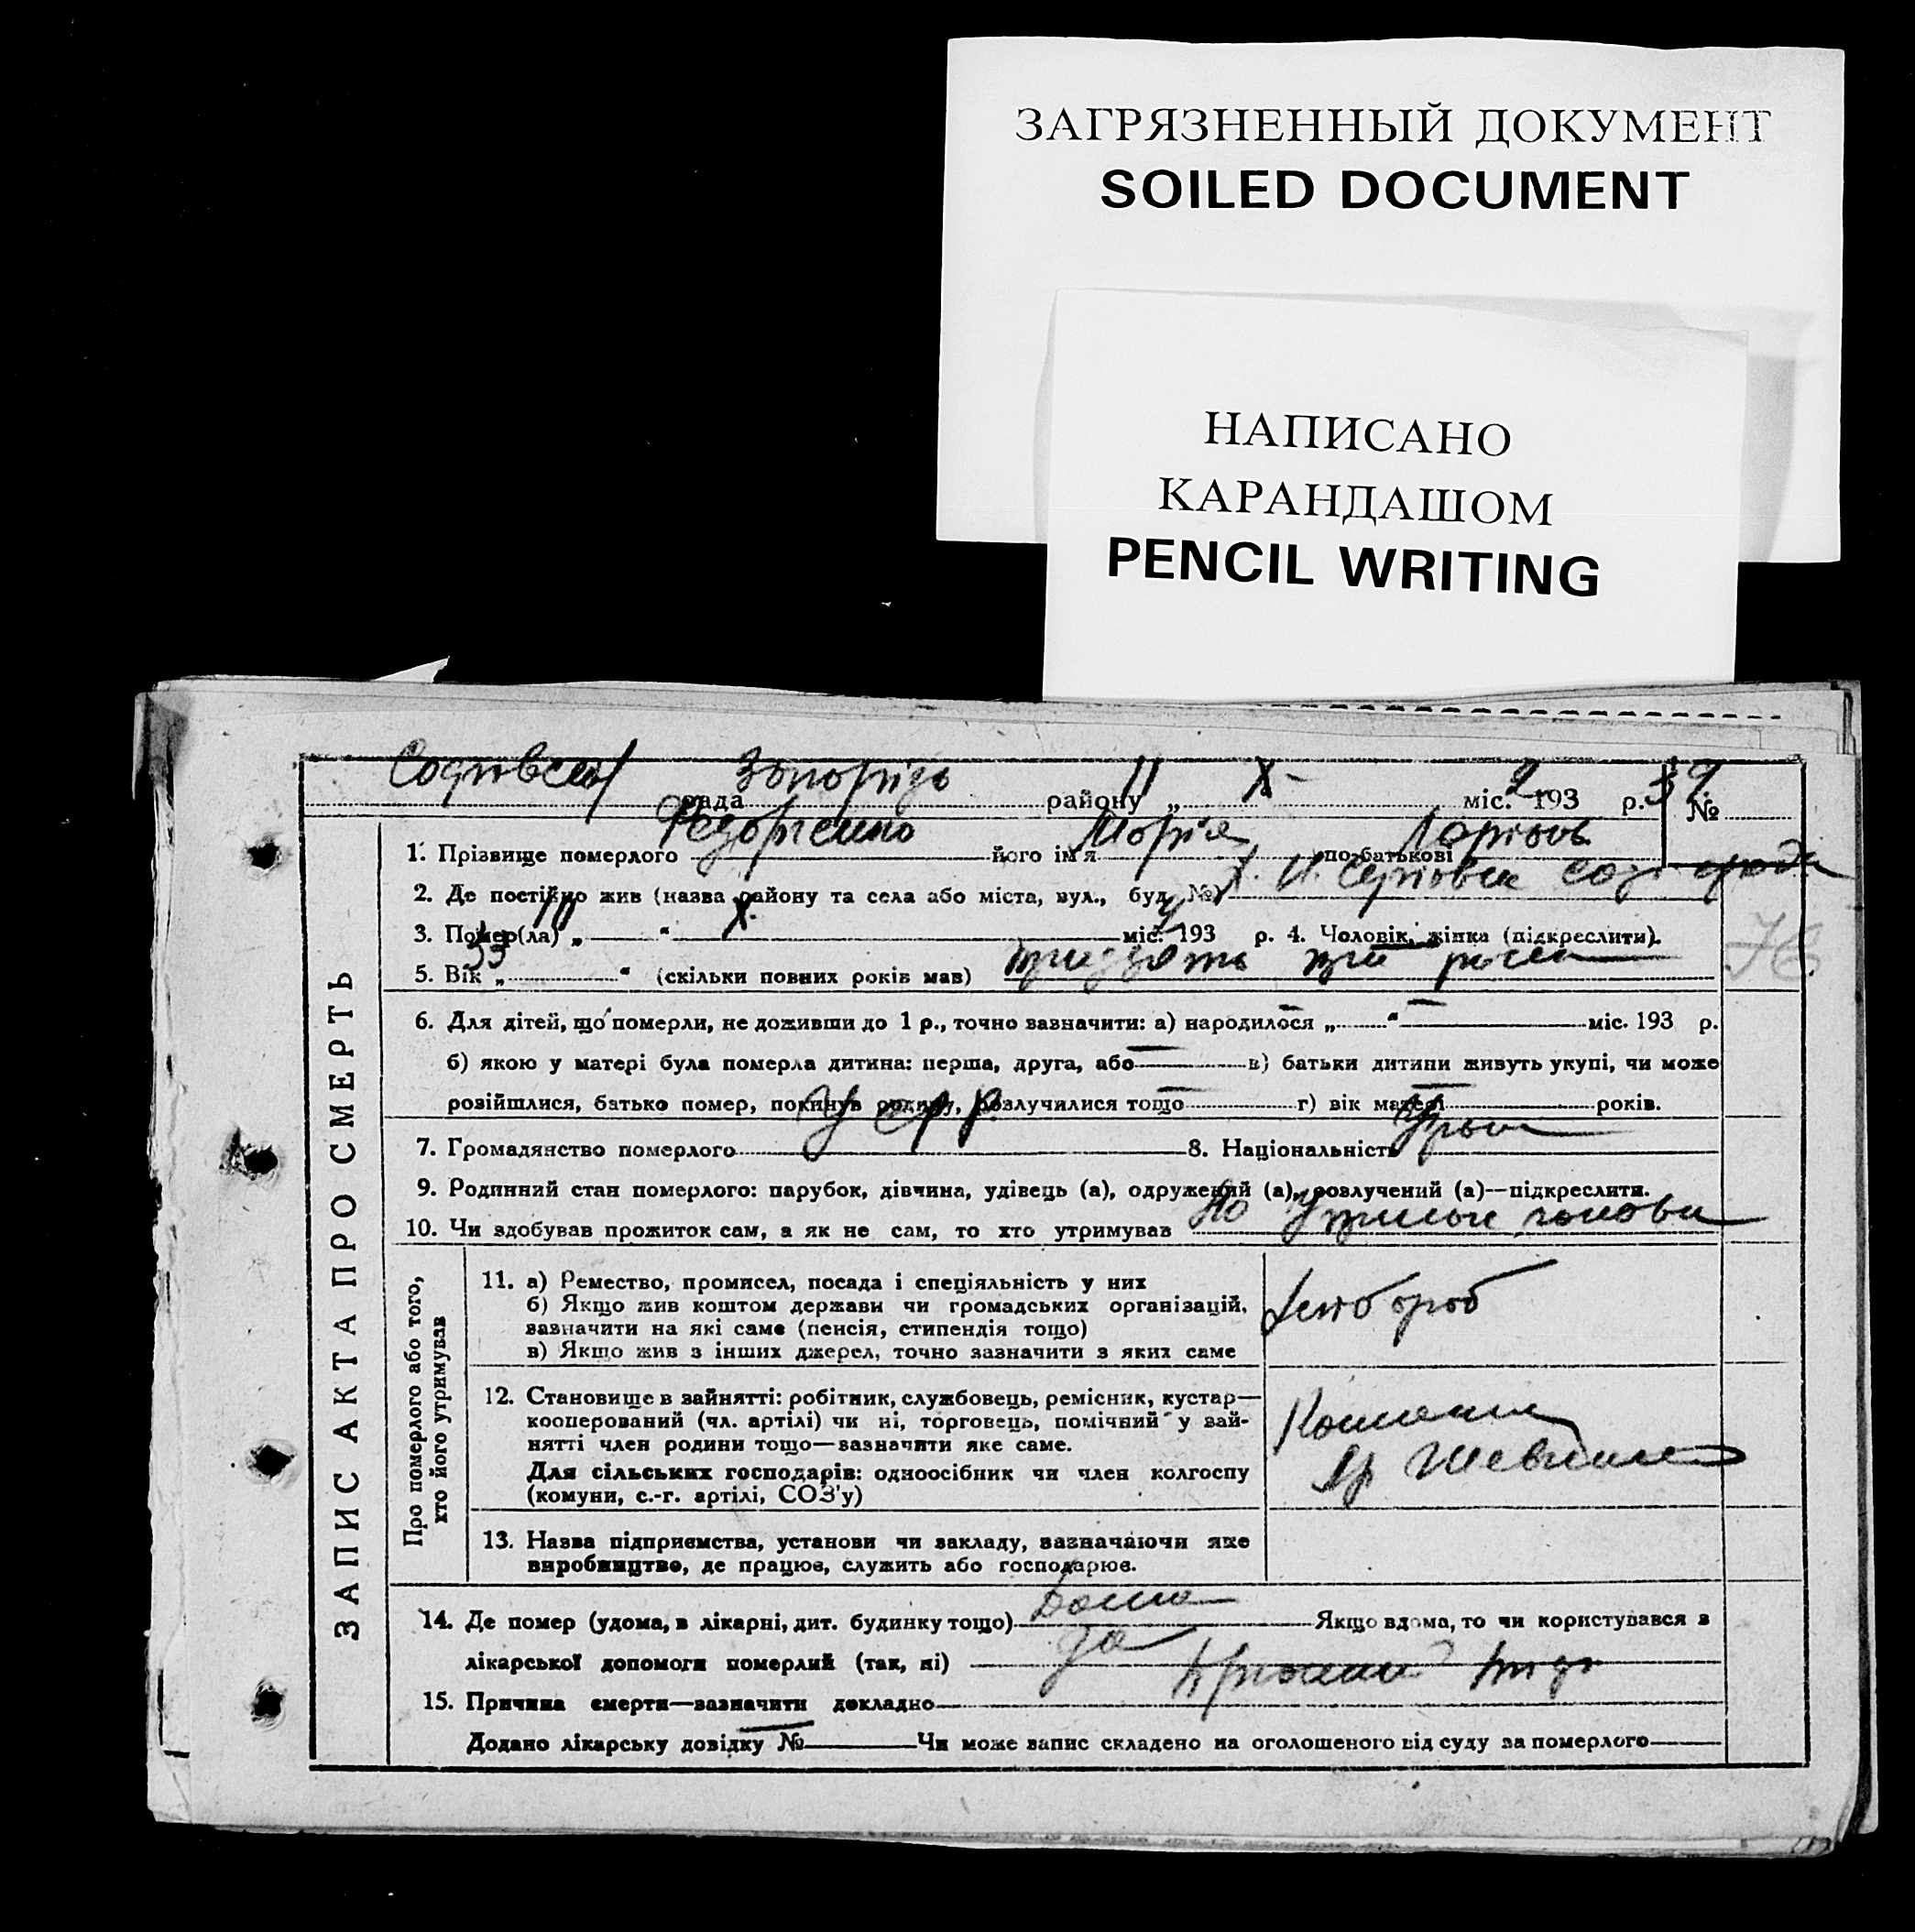 ЗАГРЯЗНЕННЫЙ ДОКУМЕНТ
SOILED DOCUMENT
НАПИСАНО
КАРАНДАШОМ
PENCIL WRITING
рада району „ 11 X- міс. 193 2 р. 39 №
1. Прізвище померлого його ім'я Марія по-батькові
2. Де постійно жив (назва району та села або міста, вул., буд. №)
3. Помер(ла) „ 10 “ X. міс. 193 р. 4. Чоловік, жінка (підкреслити).
5. Вік „ 33 “ (скільки повних років мав) тридцять три
6. Для дітей, що померли, не доживши до 1 р., точно зазначити: а) народилося „ “ міс. 193 р.
б) якою у матері була померла дитина: перша, друга, або в) батьки дитини живуть укупі, чи може
розійшлися, батько помер, покинув родину, розлучилися тощо г) вік матері років.
7. Громадянство померлого УСРР 8. Національність
9. Родинний стан померлого: парубок, дівчина, удівець (а), одружений (а), розлучений (а)—підкреслити.
10. Чи здобував прожиток сам, а як не сам, то хто утримував
ЗАПИС АКТА ПРО СМЕРТЬ
Про померлого або того,
хто його утримував
11. а) Ремество, промисел, посада і спеціяльність у них
б) Якщо жив коштом держави чи громадських організацій,
зазначити на які саме (пенсія, стипендія тощо)
в) Якщо жив з інших джерел, точно зазначити з яких саме
12. Становище в зайнятті: робітник, службовець, ремісник, кустар—
кооперований (чл. артілі) чи ні, торговець, помічний у зай-
нятті член родини тощо—зазначити яке саме.
Для сільських господарів: одноосібник чи член колгоспу
(комуни, с.-г. артілі, СОЗ'у)
13. Назва підприємства, установи чи закладу, зазначаючи яке
виробництво, де працює, служить або господарює.
14. Де помер (удома, в лікарні, дит. будинку тощо) Дома Якщо вдома, то чи користувався з
лікарської допомоги померлий (так, ні) да
15. Причина смерти—зазначити докладно
Додано лікарську довідку № Чи може запис складено на оголошеного від суду за померлого